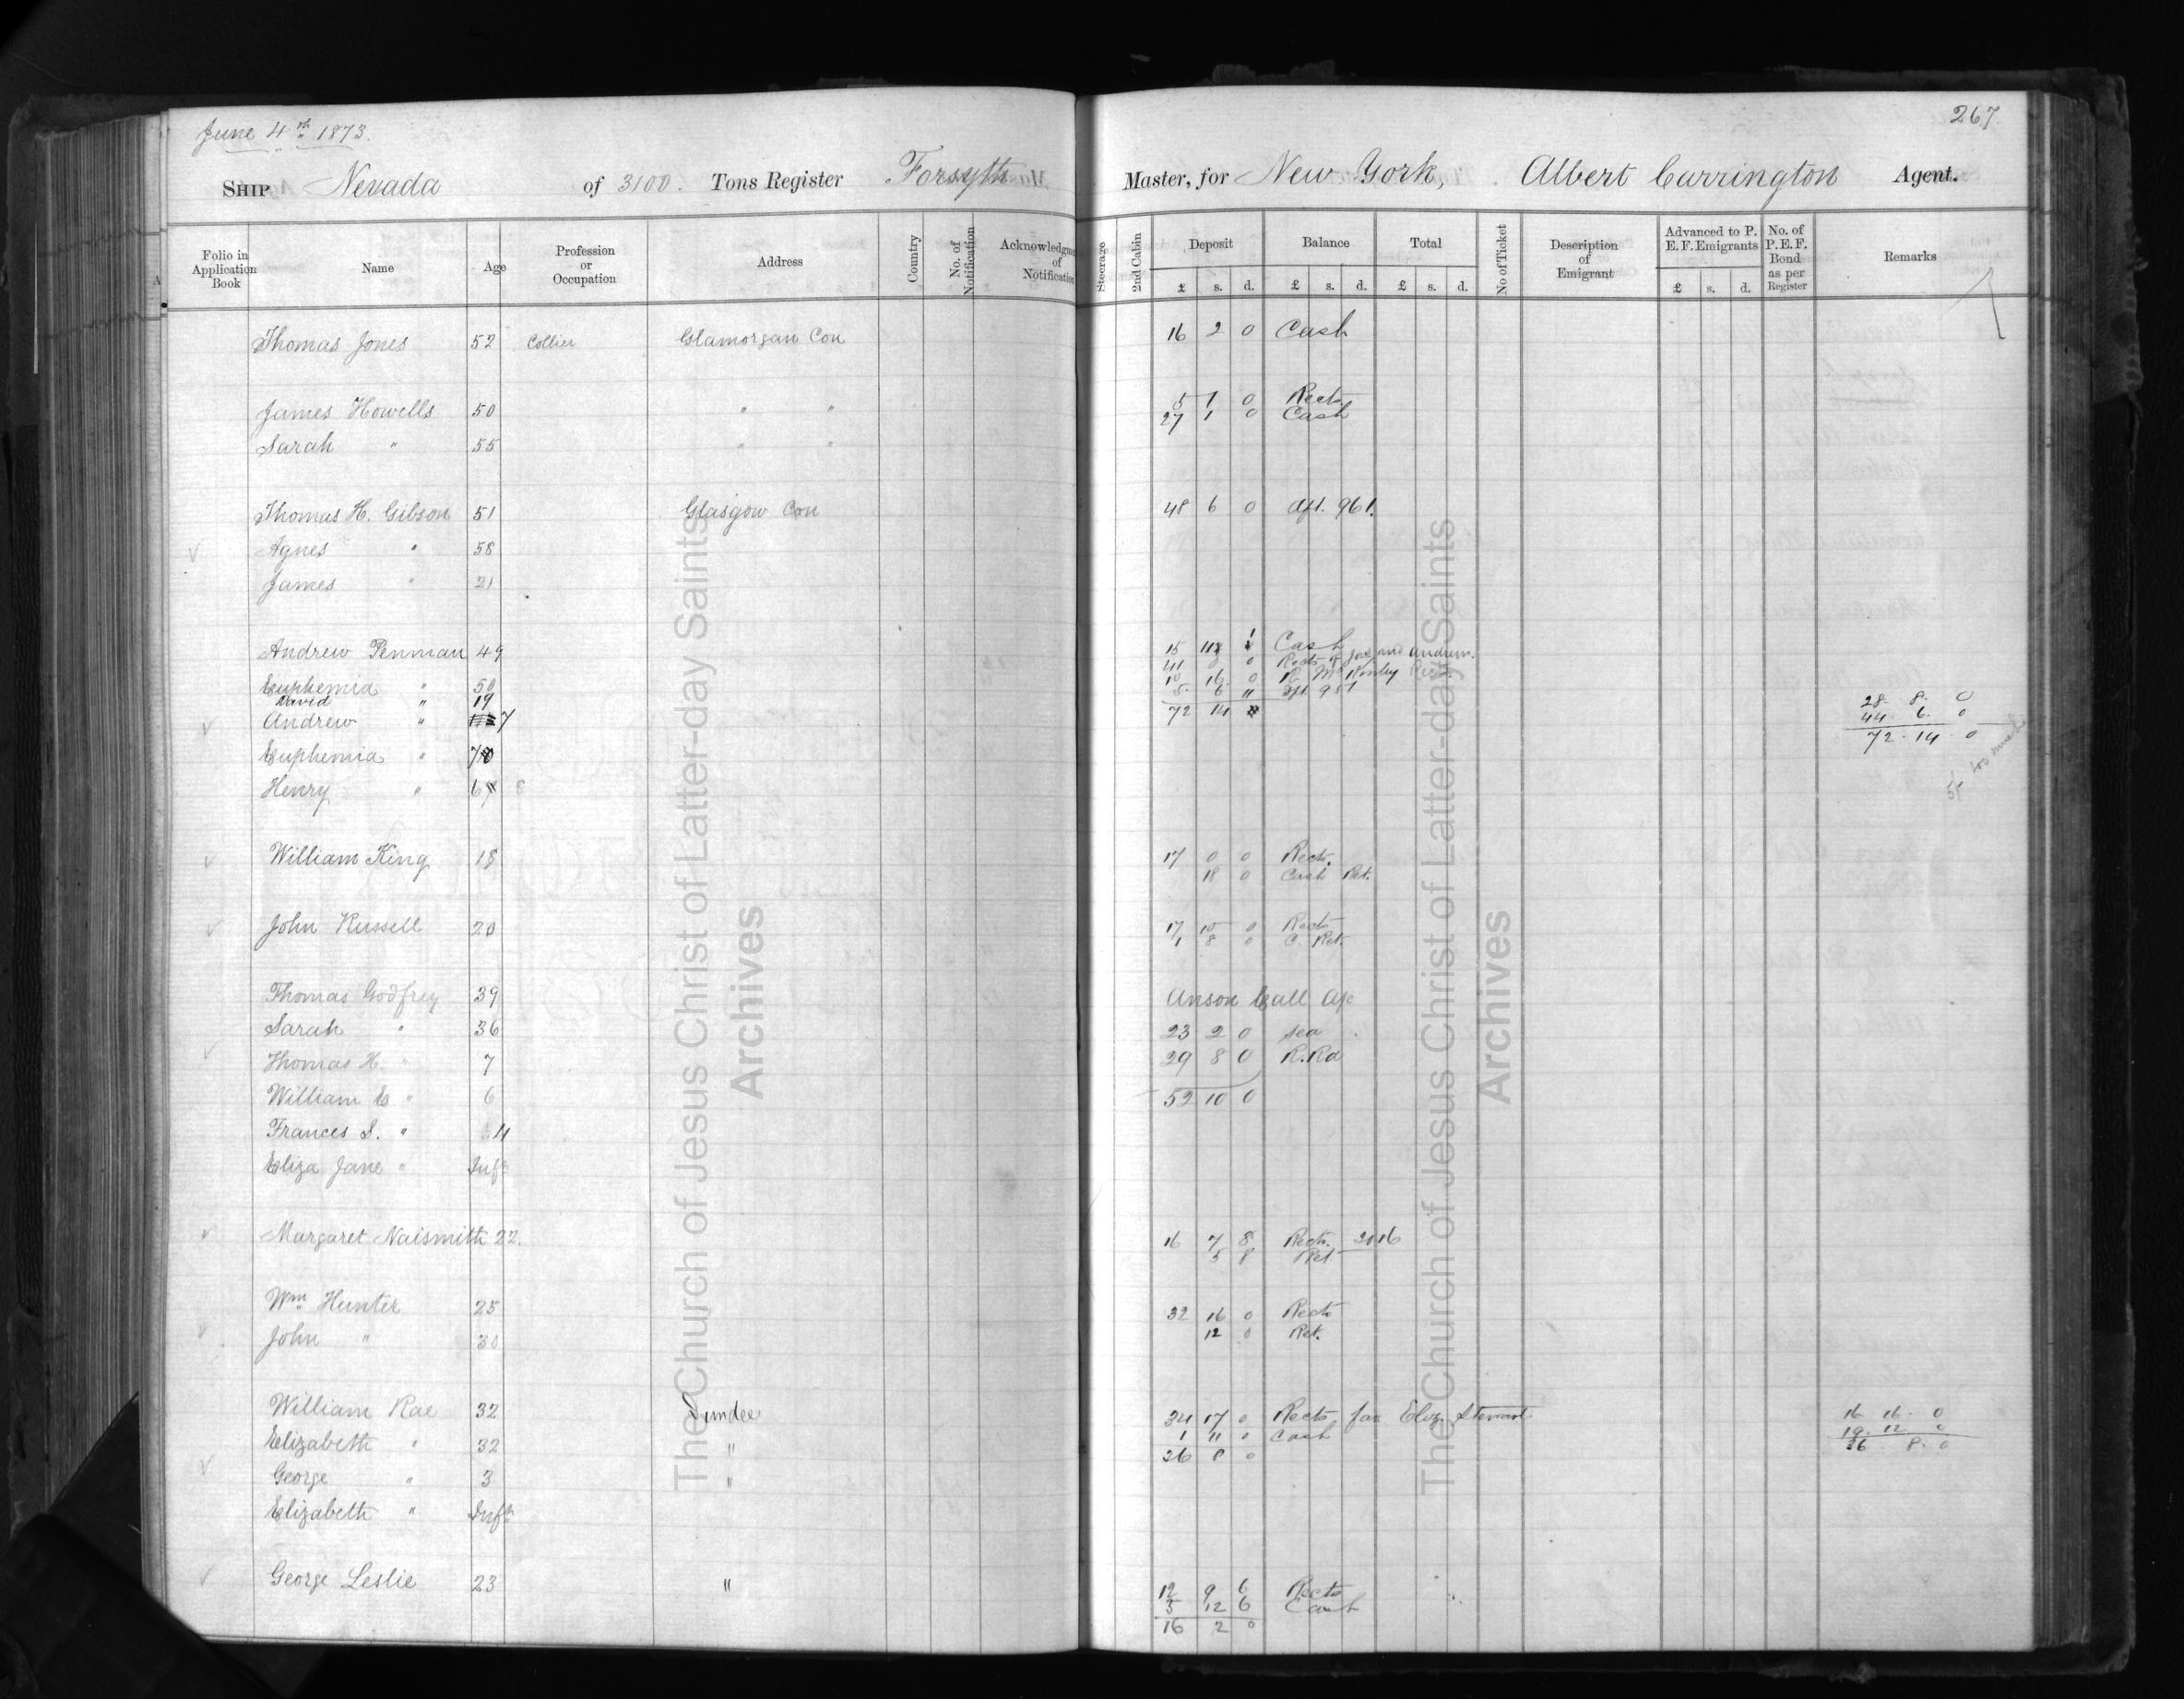 267
June 4th 1873.
SHIP Nevada of 3100. Tons Register Forsyth Master, for New York, Albert Carrington Agent.
Folio in Application Book Name Age Profession or Occupation Address Country No. of Notification Acknowledgment of Notification Steerage 2nd Cabin Deposit Balance Total No of Ticket Description of Emigrant Advanced to P. E. F. Emigrants No. of P. E. F. Bond as per Register Remarks
£ s. d. £ s. d. £ s. d. £ s. d.
Thomas Jones 52 Collier Glamorgan Con 16 2 0 Cash
James Howells 50 " " 5 1 0 Rects
27 1 0 Cash
Sarah " 55 " "
Thomas H. Gibson 51 Glasgow Con 48 6 0 dft. 961.
Agnes " 58
James " 21
Andrew Penman 49 15 Cash
41 0 Rects and Andrew.
Euphemia " 50 10 16 0 McKinley
David " 19 5 6 11 dft 951
Andrew " 7 72 14
28. 8. 0
44. 6. 0
72. 14. 0
Euphemia "
Henry " 8
5/ too much
William King 18 17 0 0 Rects.
18 0 Cash Ret.
John Russell 20 17 10 0 Rects
1 8 0 C. Ret.
Thomas Godfrey 39 Anson Call a/c
Sarah " 36 23 2 0 Sea
Thomas H. " 7 29 8 0 R.Rd
William E " 6 52 10 0
Frances S. " 4
Eliza Jane " Inft
Margaret Naismith 22. 16 7 8 Rects. 2016
5 8 Ret.
Wm Hunter 25 32 16 0 Rects
John " 30 12 0 Ret.
William Rae 32 Dundee 34 17 0 Rects for Eliz. Stewart 16 16. 0
Elizabeth " 32 " 1 11 0 Cash 19. 12 0
36 8 0 36 8. 0
George " 3 "
Elizabeth " Inft
George Leslie 23 " 12 9 6 Rects
3 12 6 Cash
16 2 0
The Church of Jesus Christ of Latter-day Saints
Archives
The Church of Jesus Christ of Latter-day Saints
Archives